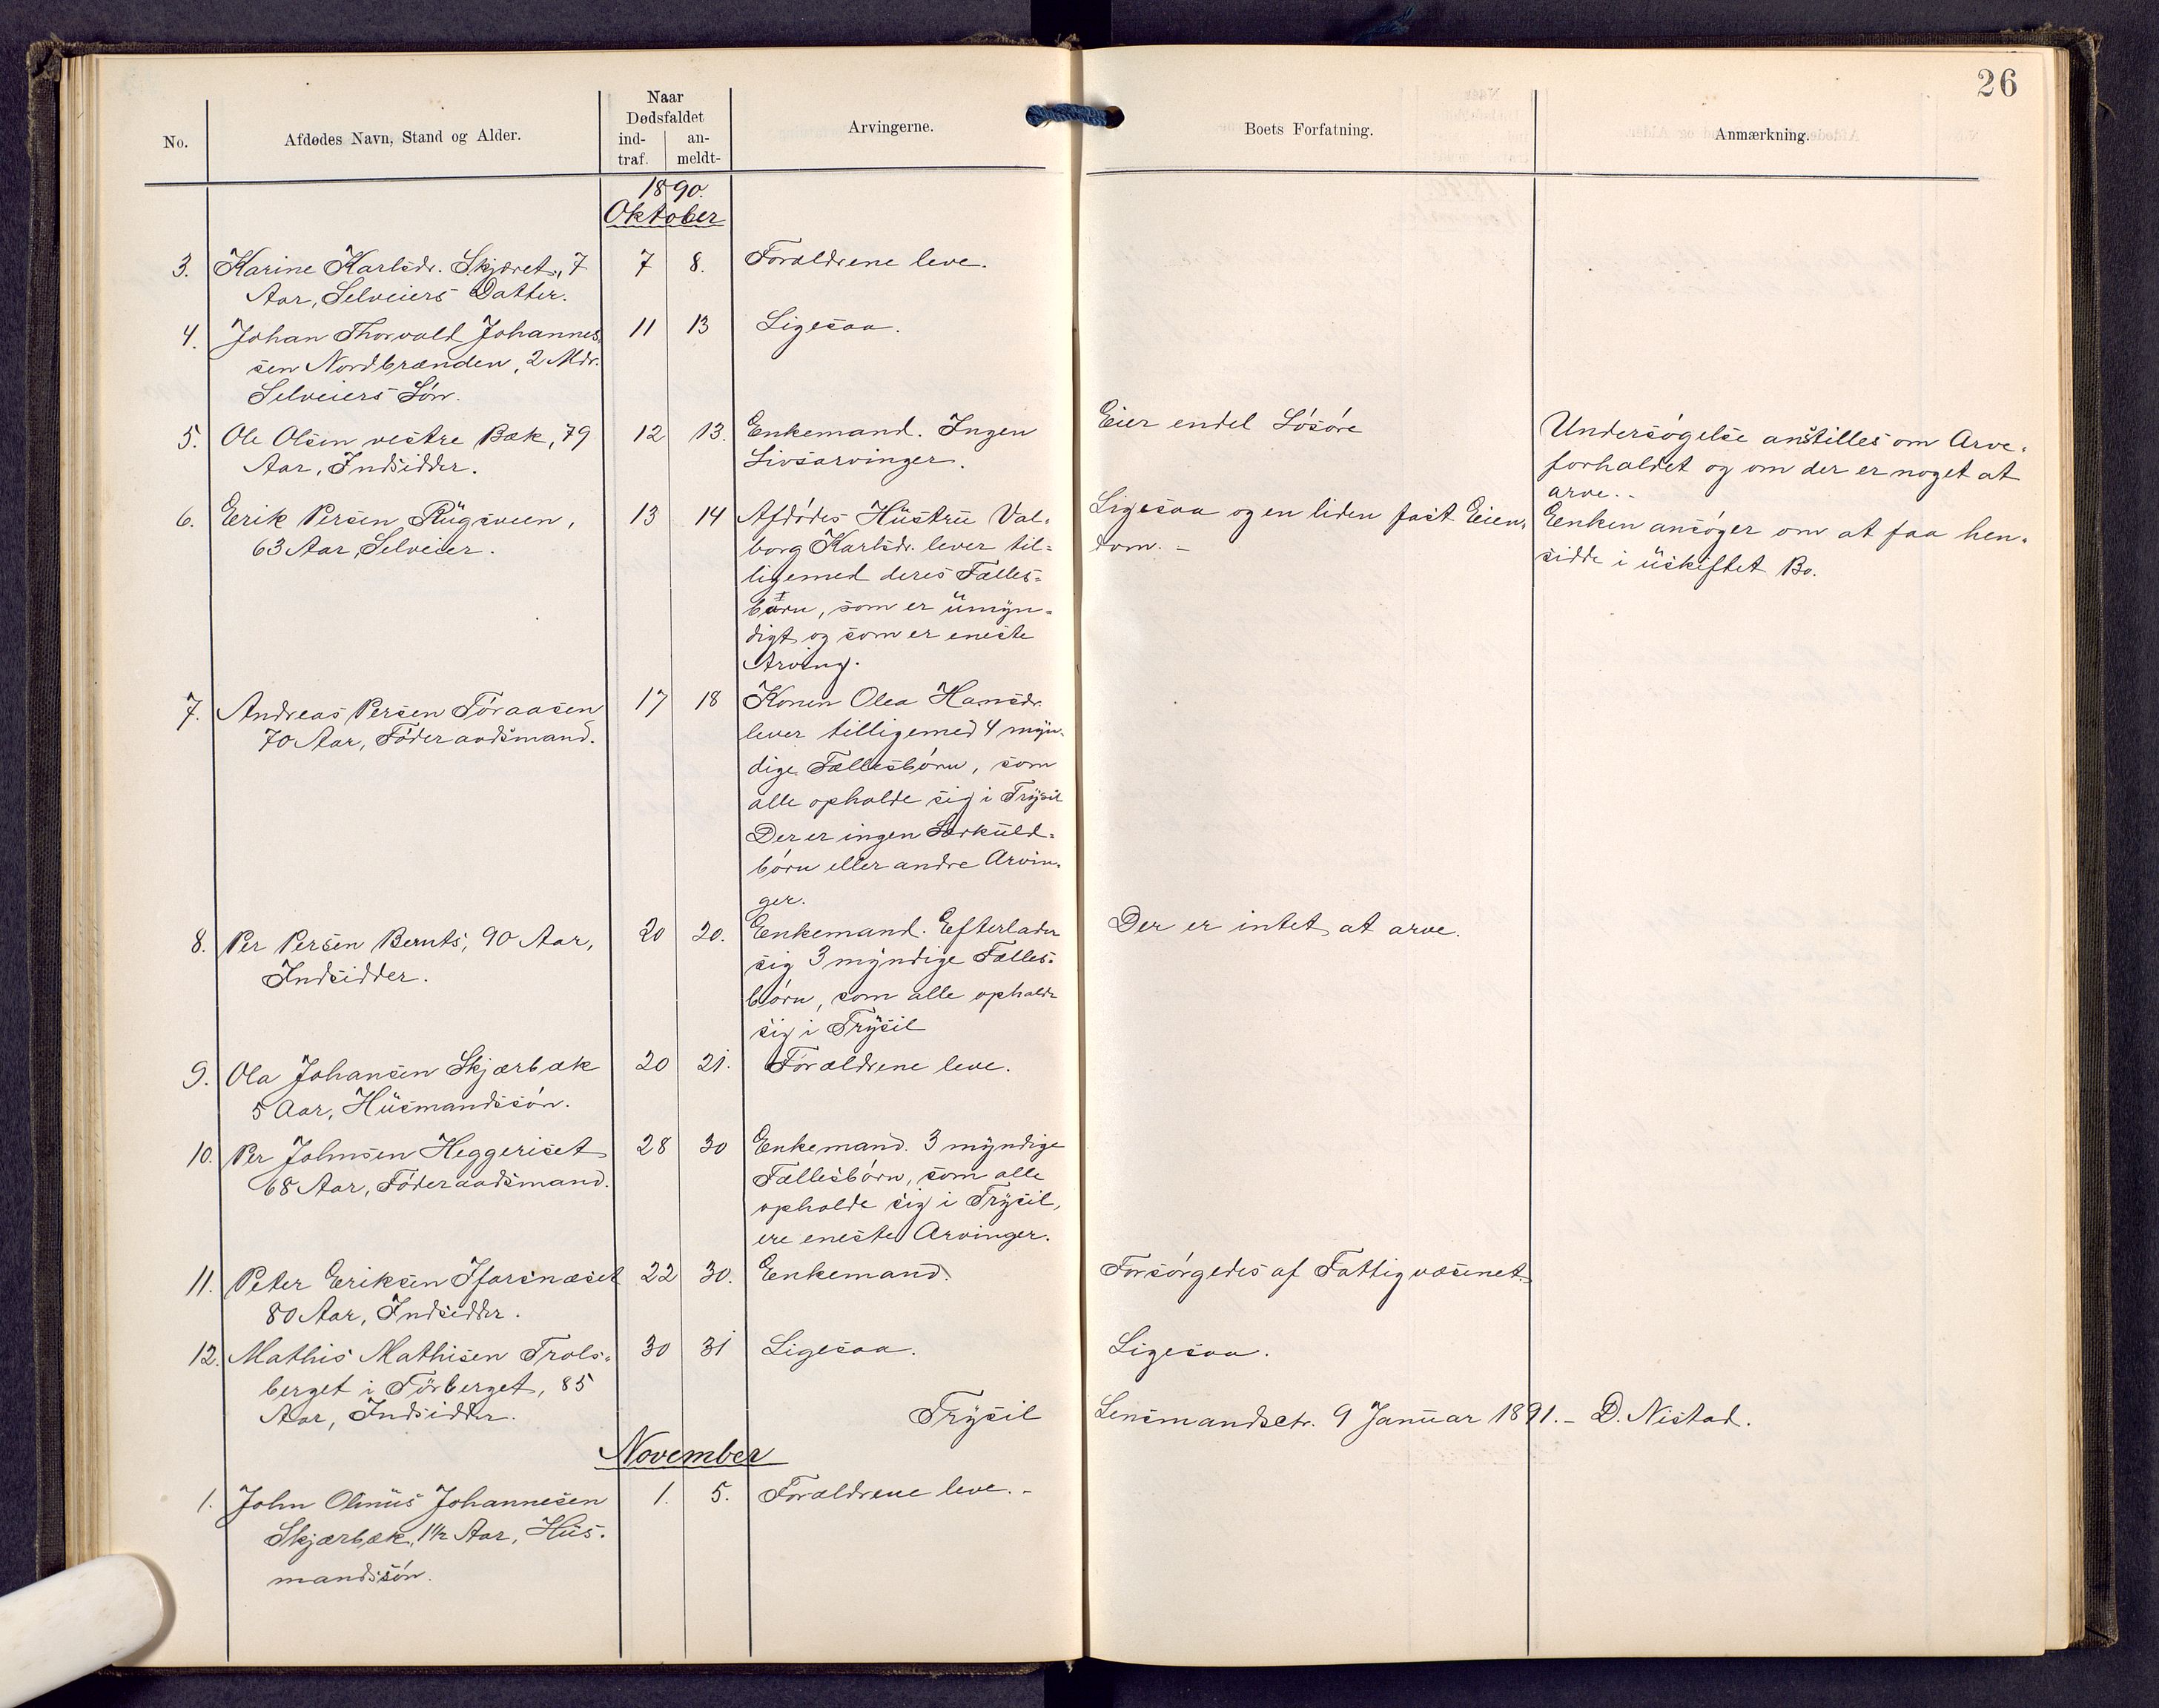 26
No.
Afdødes Navn, Stand og Alder.
Naar
Dødsfaldet
ind-
traf.
an-
meldt-
Arvingerne.
Boets Forfatning.
Anmærkning.
1890.
Oktober
3. Karine Karlsdr. Skjæret, 7
Aar, Selveiers Datter.
7 8. Forældrene leve.
4. Johan Thorvald Johannes
sen Nordbrænden, 2 Mdr.
Selveiers Søn.
11 13 Ligesaa.
5. Ole Olsen vestre Bæk, 79
Aar, Indsidder.
12 13. Enkemand. Ingen
Livsarvinger.
Eier endel Løsøre
Undersøgelse anstilles om Arve-
forholdet og om der er noget at
arve. -
6. Erik Persen Rugsveen,
63 Aar, Selveier.
13 14 Afdødes Hustru Val-
borg Karlsdr. lever til-
ligemed deres Fælles-
barn, som er umyn-
digt og som er eneste
Arving.
Ligesaa og en liden fast Eien-
dom. -
Enken ansøger om at faa hen-
sidde i uskiftet Bo.
7. Andreas Persen Føraasen
70 Aar, Føderaadsmand.
17 18 Konen Olea Hansdr.
lever tilligemed 4 myn-
dige Fællesbørn, som
alle opholde sig i Trysil
Der er ingen Særkuld-
børn eller andre Arvin-
ger.
8. Per Persen Bernts, 90 Aar,
Indsidder.
20 20. Enkemand. Efterlader
sig 3 myndige Fælles-
børn, som alle opholde
sig i Trysil
Der er intet at arve.
9. Ola Johansen Skjærbæk
5 Aar, Husmandssøn.
20 21. Forældrene leve.
10. Per Johnsen Heggeriset
68 Aar, Føderaadsmand.
28 30 Enkemand. 3 myndige
Fællesbørn, som alle
opholde sig i Trysil,
ere eneste Arvinger.
11. Peter Eriksen
80 Aar, Indsidder.
22 30. Enkemand.
Forsørgedes af Fattigvæsenet.
12. Mathis Mathisen Trols-
berget i Tørberget, 85
Aar, Indsidder.
30 31 Ligesaa.
Ligesaa.
Trysil Lensmandsctr. 9 Januar 1891. - D. Nistad.
November
1. John Olinus Johannesen
Skjærbæk, 1½ Aar, Hus-
mandssøn.
1. 5. Forældrene leve. -